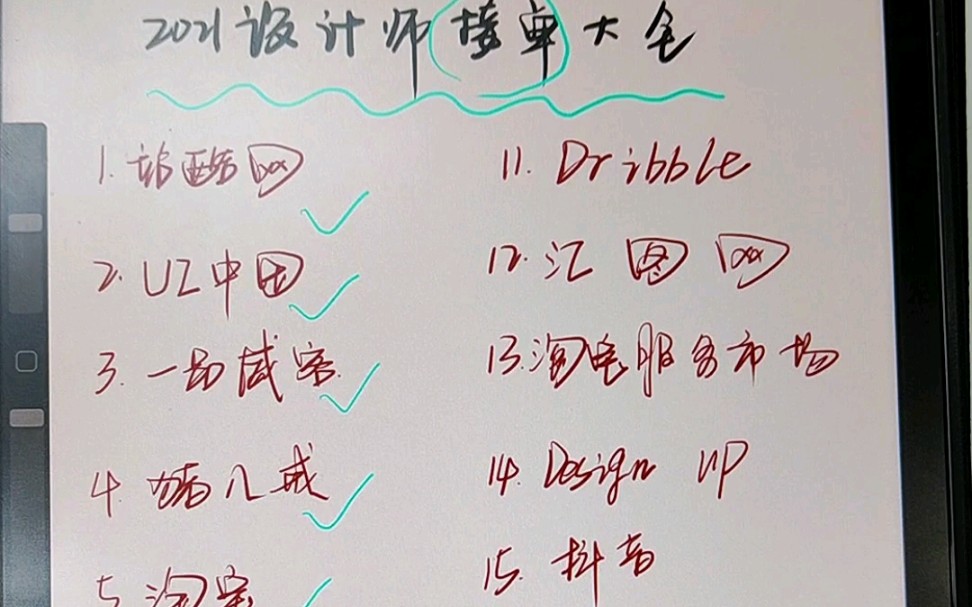 2021设计师接单大全
1. 站酷网
2. UI中国
3. 一品威客
4. 猪八戒
5. 淘宝
11. Dribble
12. 汇图网
13. 淘宝服务市场
14. Design UP
15. 抖音